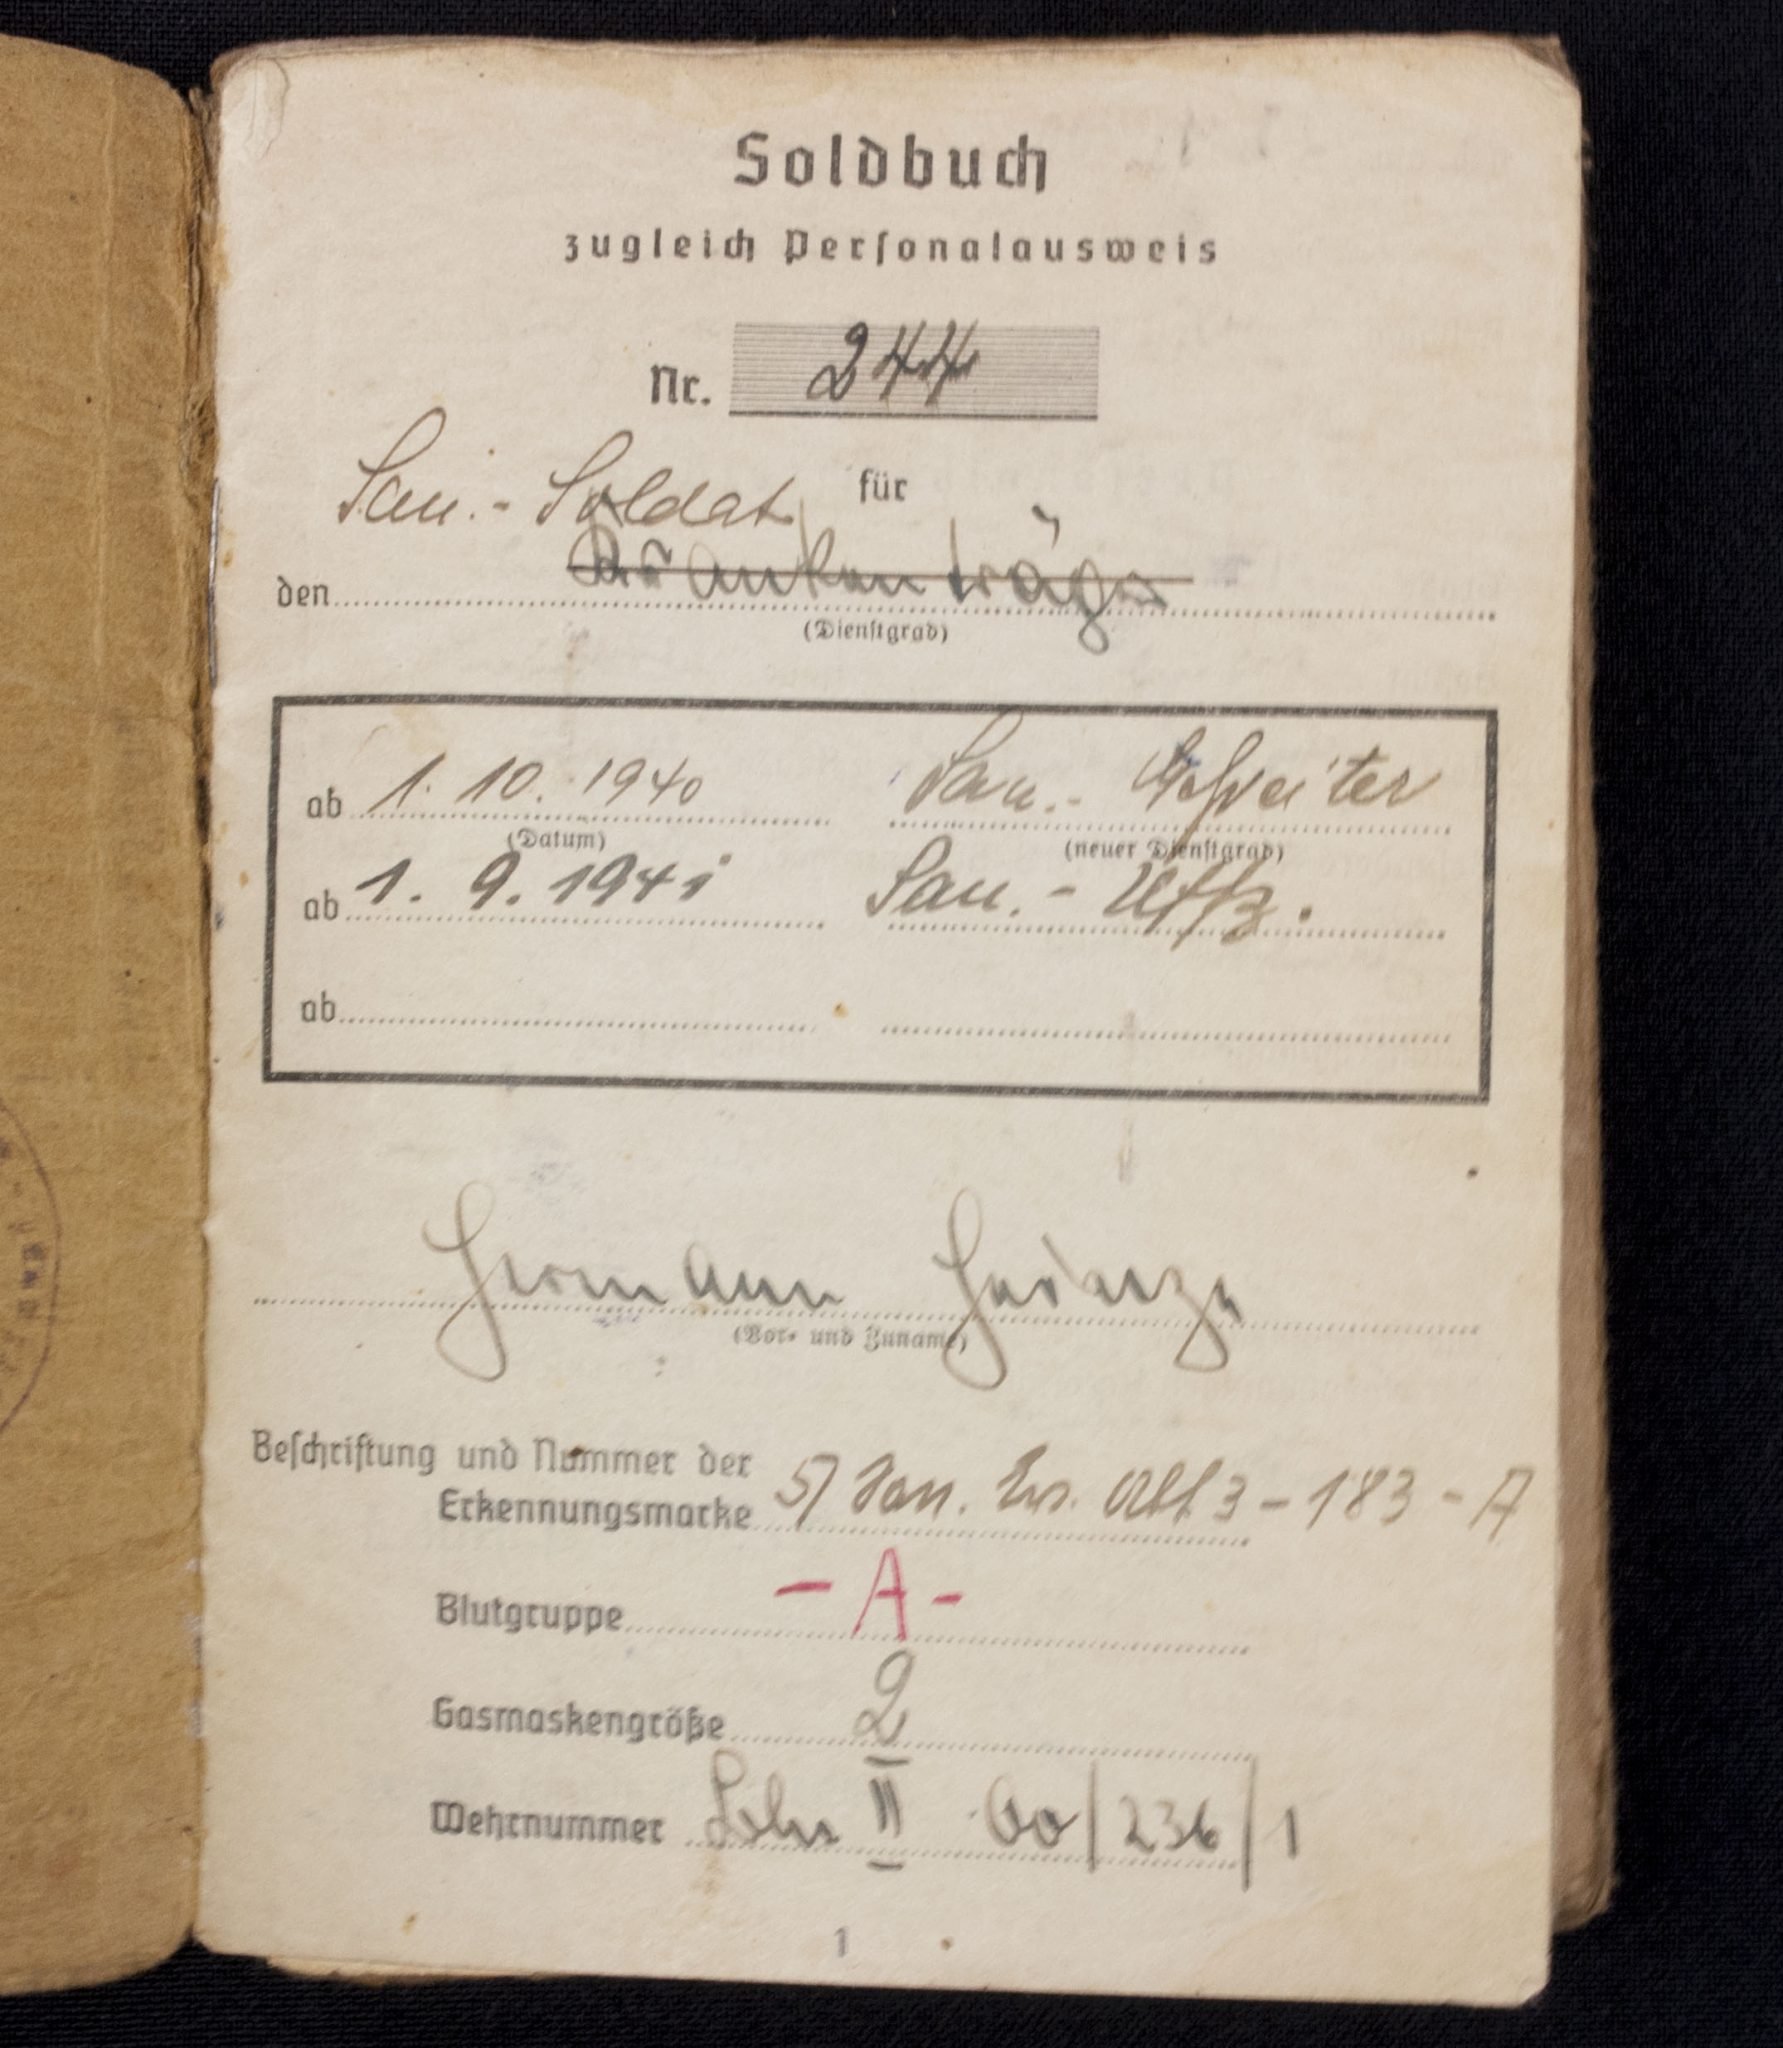 Soldbuch
zugleich Personalausweis
Nr. 244
San.- Soldat für
den Krankenträger
(Dienstgrad)
ab 1. 10. 1940 San.- Gefreiter
(Datum) (neuer Dienstgrad)
ab 1. 9. 1941 San.- Uffz.
ab
Hermann
(Vor- und Zuname)
Beschriftung und Nummer der
Erkennungsmarke 5/ San. Ers. Abt 3 - 183 - A
Blutgruppe - A -
Gasmaskengröße 2
Wehrnummer II 00/236/1
1